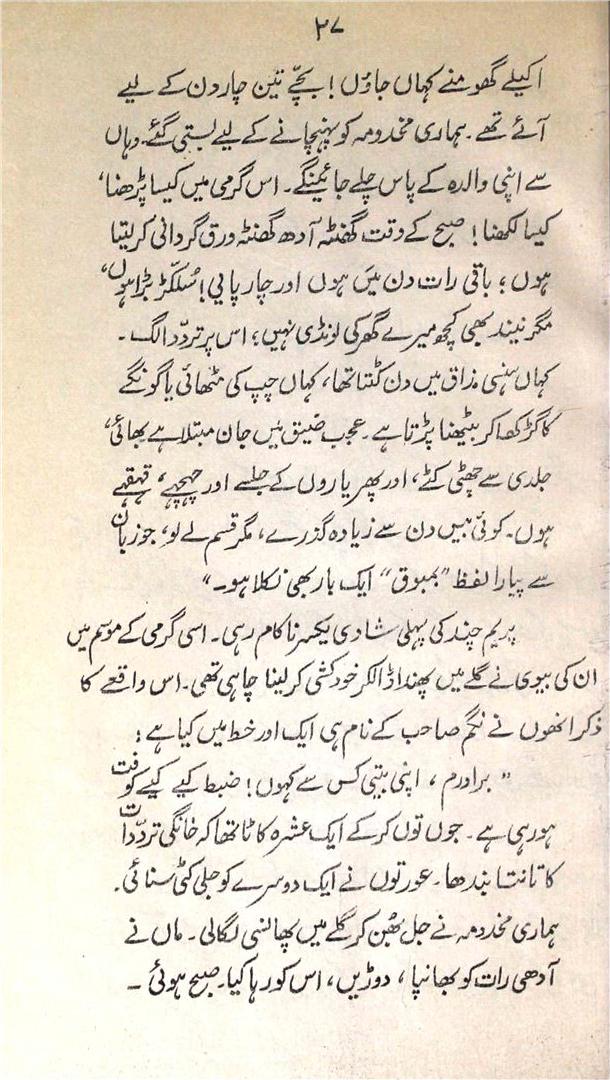 ۲۷
اکیلے گھومنے کہاں جاؤں! بچّے تین چار دن کے لیے
آئے تھے۔ ہماری مخدومہ کو پہنچانے کے لیے بستی گئے۔ وہاں
سے اپنی والدہ کے پاس چلے جائینگے۔ اس گرمی میں کیسا پڑھنا،
کیسا لکھنا! صبح کے وقت گھنٹہ آدھ گھنٹہ ورق گردانی کر لیتا
ہوں؛ باقی رات دن میں ہوں اور چارپایی! سُلکّڑ بڑا ہوں،
مگر نیند بھی کچھ میرے گھر کی لونڈی نہیں؛ اس پر تردّد الگ۔
کہاں ہنسی مذاق میں دن کٹتا تھا، کہاں چپ کی مٹھائی یا گونگے
کا گڑ کھا کر بیٹھنا پڑتا ہے۔ عجب ضیق میں جان مبتلا ہے بھائی،
جلدی سے چھٹی کٹے، اور پھر یاروں کے جلسے اور چہچہے، قہقہے
ہوں۔ کوئی بیس دن سے زیادہ گذرے، مگر قسم لے لو، جو زبان
سے پیارا لفظ "بمبوق" ایک بار بھی نکلا ہو۔"
پریم چند کی پہلی شادی یکسر ناکام رہی۔ اسی گرمی کے موسم میں
ان کی بیوی نے گلے میں پھندا ڈالکر خودکشی کر لینا چاہی تھی۔ اس واقعے کا
ذکر انھوں نے نگم صاحب کے نام ہی ایک اور خط میں کیا ہے:
"برادرم، اپنی بیتی کس سے کہوں! ضبط کیے کیے کوفت
ہو رہی ہے۔ جوں توں کرکے ایک عشرہ کاٹا تھا کہ خانگی تردّدات
کا تانتا بندھا۔ عورتوں نے ایک دوسرے کو جلی کٹی سنائی۔
ہماری مخدومہ نے جل بھُن کر گلے میں پھانسی لگالی۔ ماں نے
آدھی رات کو بھانپا، دوڑیں، اس کو رہا کیا۔ صبح ہوئی۔